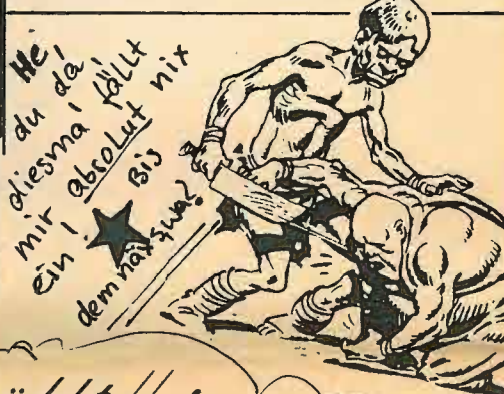 He,
du da,
diesma' fällt
mir absolut nix
ein! Bis
demnäx, wa?